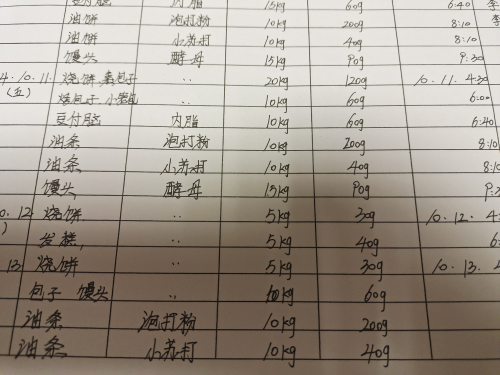 内脂 15kg 60g 6:40
油饼 泡打粉 10kg 200g 8:10 李
油饼 小苏打 10kg 40g 8:10
馒头 酵母 15kg 90g 9:30
4.10.11. 烧饼 蒸包子 〃 20kg 120g 10.11. 4:30
(五) 包子 小笼包 10kg 60g 6:00
豆付脑 内脂 10kg 60g 6:40
油条 泡打粉 10kg 200g 8:10
油条 小苏打 10kg 40g 8:10
馒头 酵母 15kg 90g
0.12 烧饼 〃 5kg 30g 10.12. 4:
发糕, 〃 5kg 40g 6:
13 烧饼 〃 5kg 30g 10.13. 4
包子 馒头 〃 10kg 60g
油条 泡打粉 10kg 200g
油条 小苏打 10kg 40g